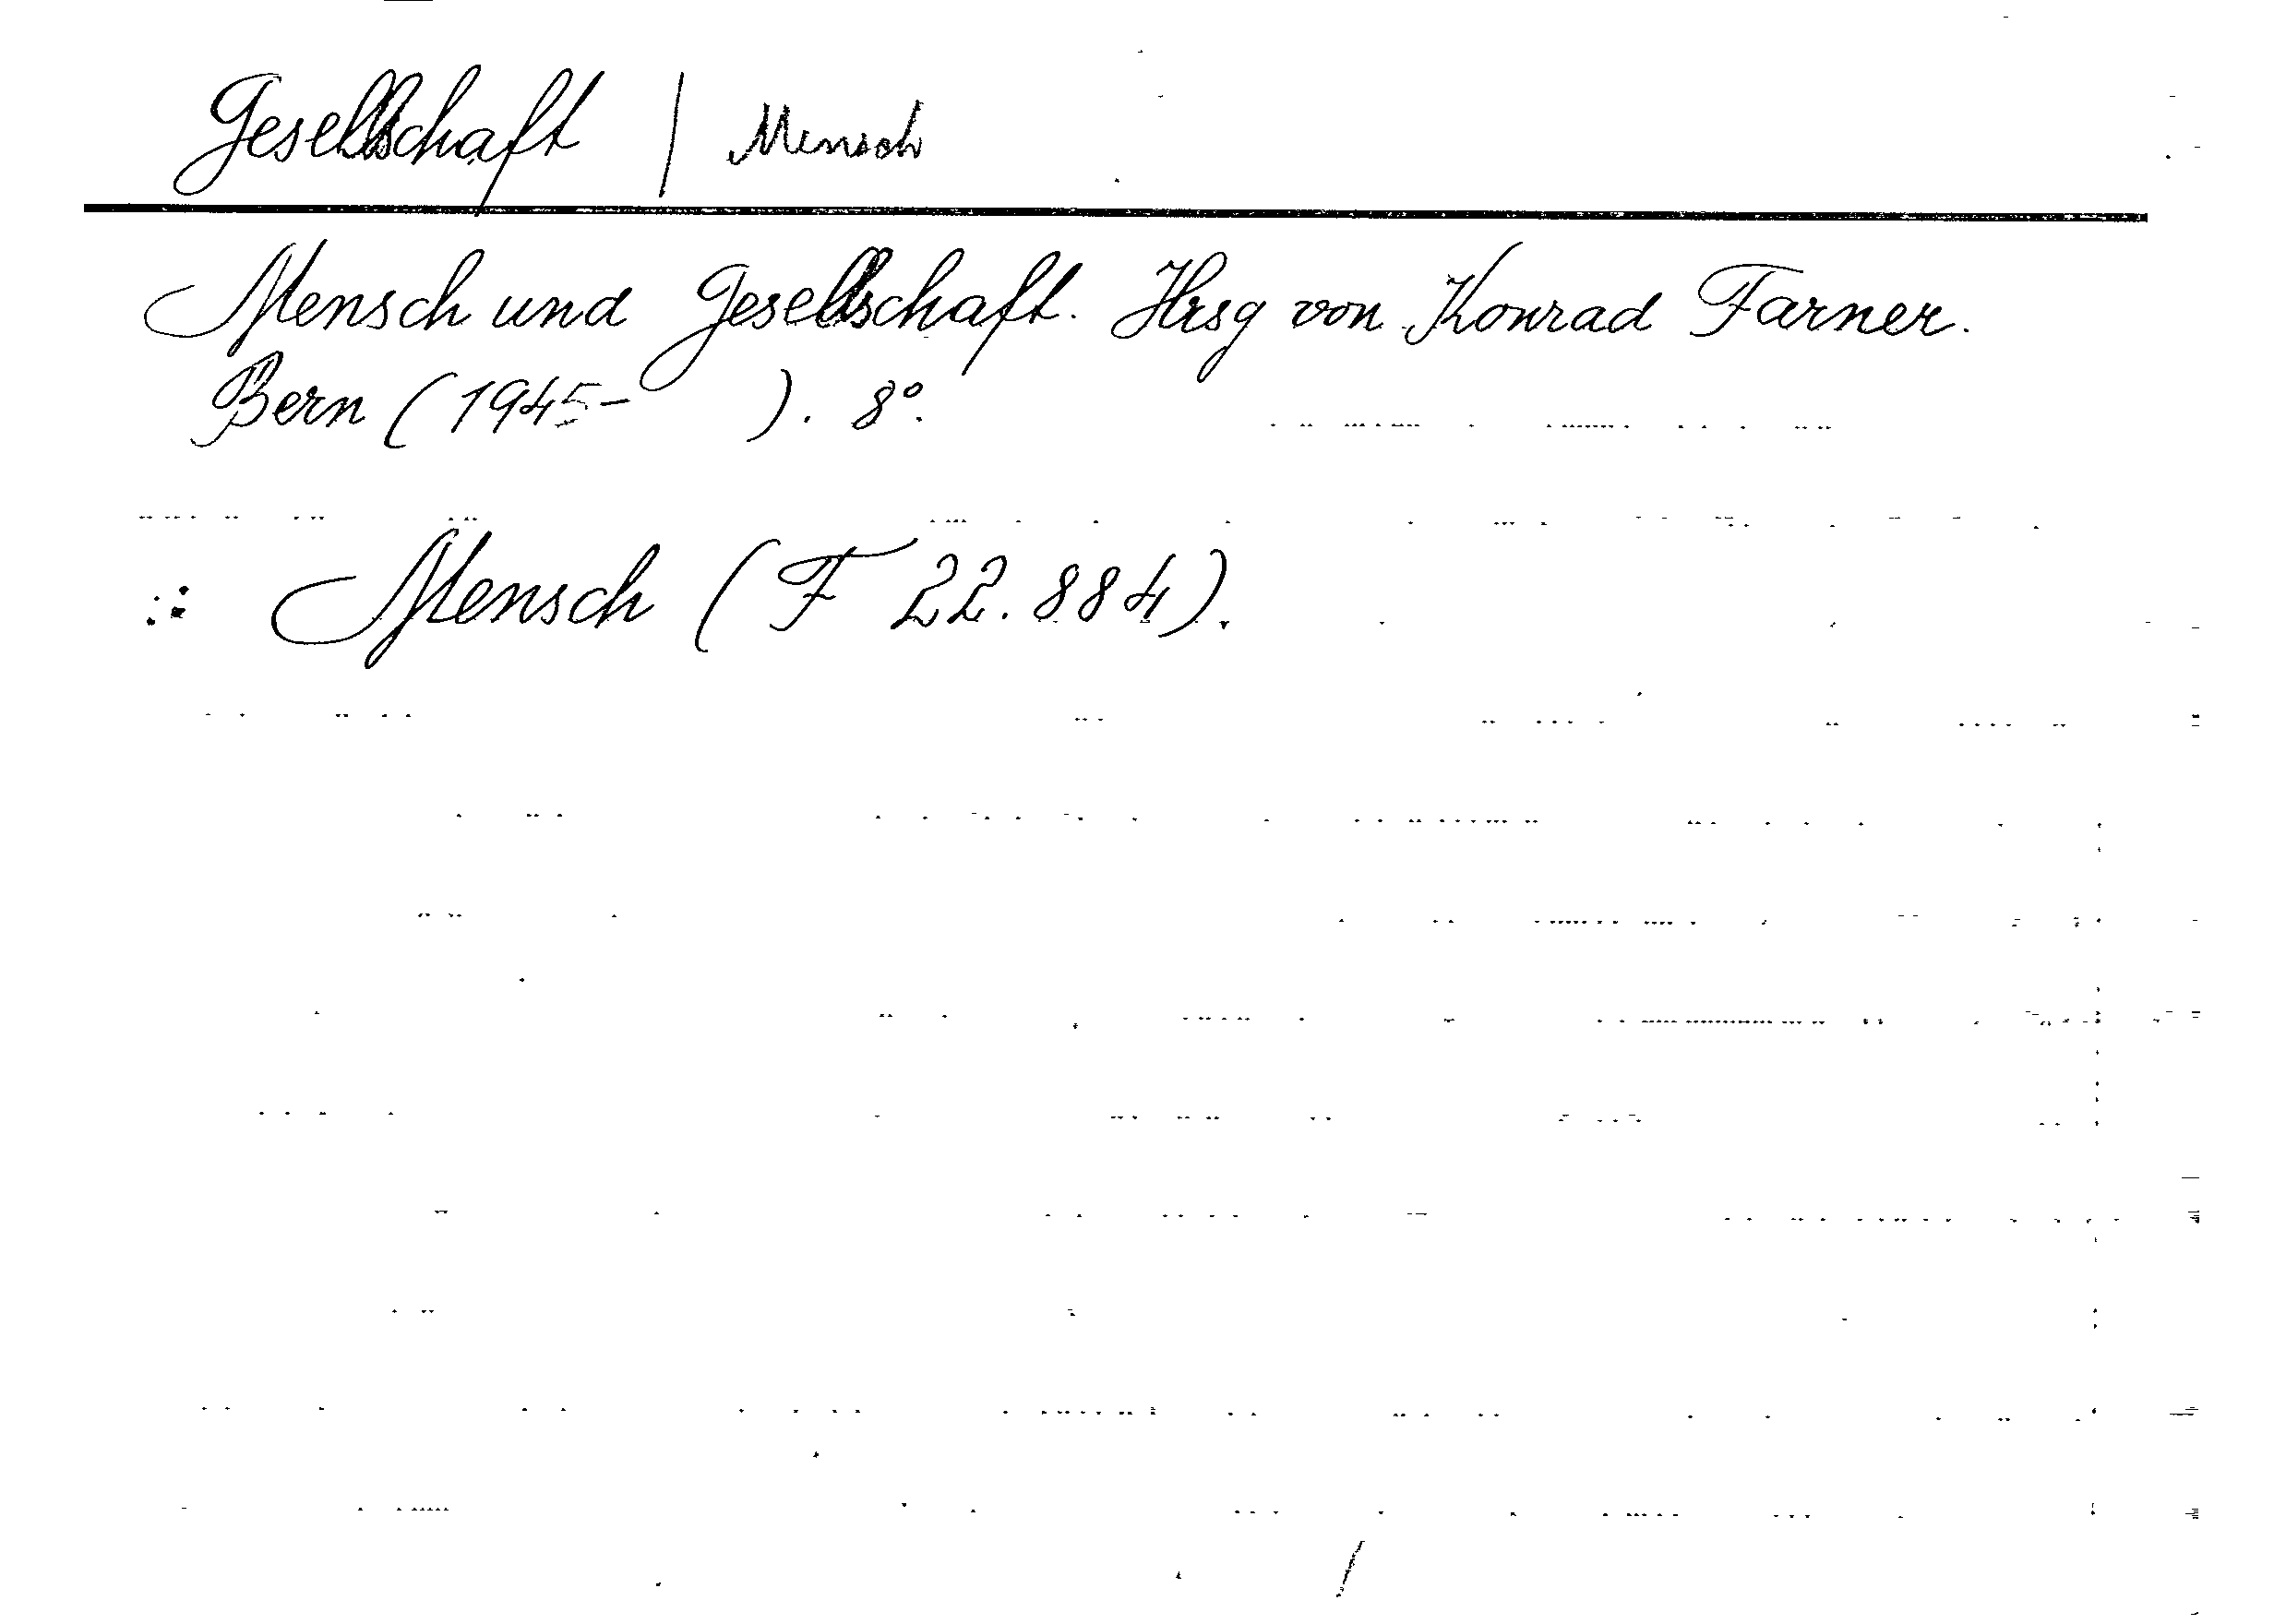 Gesellschaft / Mensch
Mensch und Gesellschaft. Hrsg von Konrad Farner.
Bern (1945- ). 8°.
:: Mensch (F 22.884).